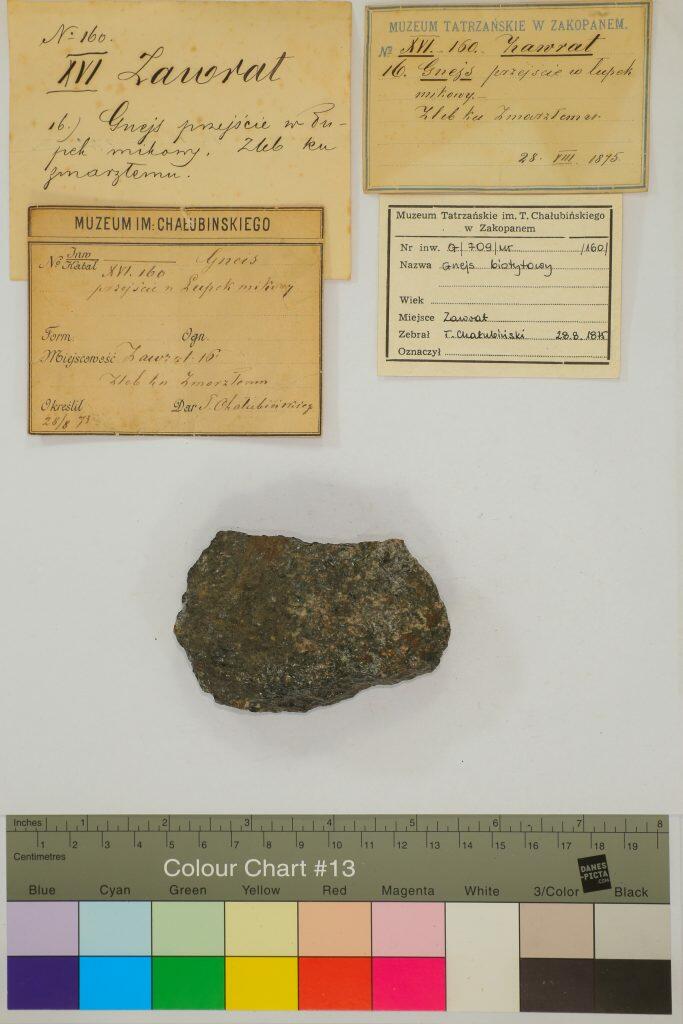 No 160.
XVI Zawrat
16.) Gnejs przejście w Łu-
pek mikowy. Żleb ku
zmarzłemu.
MUZEUM TATRZAŃSKIE W ZAKOPANEM.
No XVI. 160. Zawrat
16. Gnejs przejście w łupek
mikowy.
Żleb ku Zmarzłemu
28. VIII. 1875.
MUZEUM IM. CHAŁUBIŃSKIEGO
No Inw Katal XVI. 160 Gneis
przejście n Łupek mikowy
Form. Ogn.
Miejscowość Zawrat 16
Żleb ku Zmarzłemu
Określił Dar T. Chałubińskiego
28/8 73
Muzeum Tatrzańskie im. T. Chałubińskiego
w Zakopanem
Nr inw. G/709/nr /160/
Nazwa Gnejs biotytowy
Wiek
Miejsce Zawrat
Zebrał T. Chałubiński 28.8.1875
Oznaczył
Inches 1 2 3 4 5 6 7 8
Centimetres 1 2 3 4 5 6 7 8 9 10 11 12 13 14 15 16 17 18 19
Colour Chart #13
DANES
-PICTA
.COM
Blue Cyan Green Yellow Red Magenta White 3/Color Black